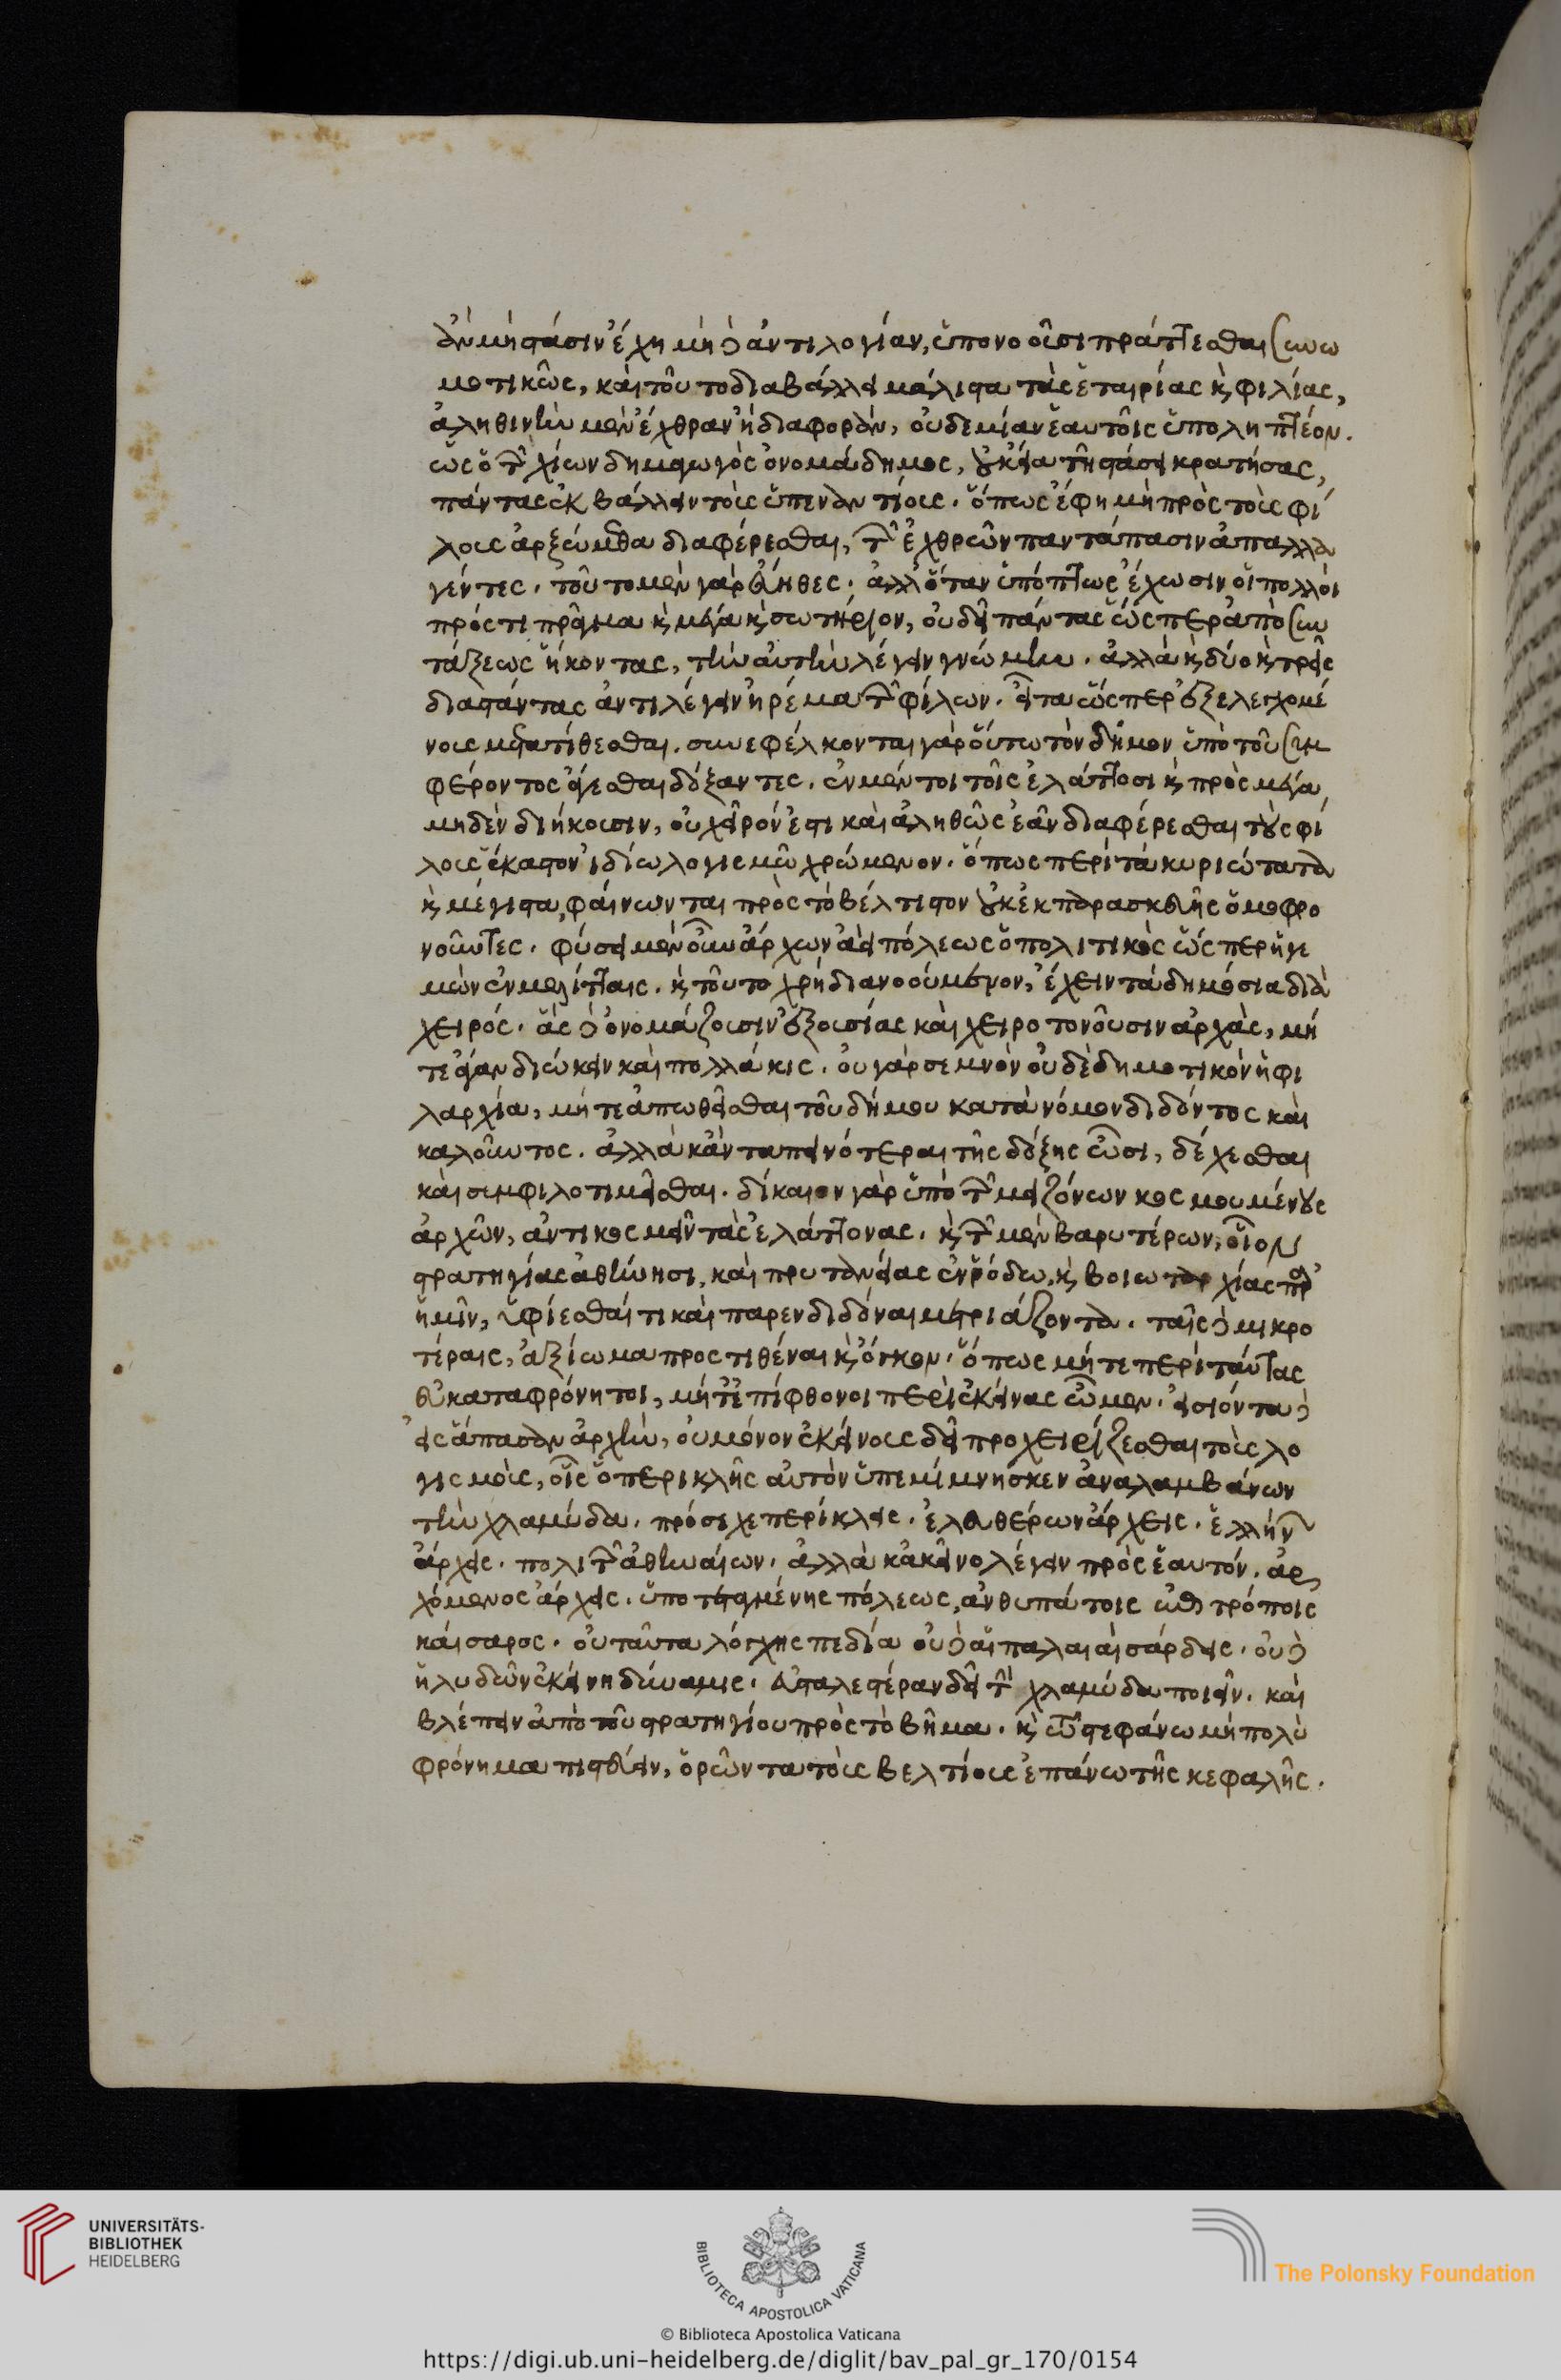 ἂν μὴ στάσιν ἔχη μὴ δὲ ἀντιλογίαν, ὑπονοοῦσι πράττεσθαι συνω
μοτικῶς, καὶ τοῦτο διαβάλλει μάλιστα τὰς ἑταιρίας καὶ φιλίας,
ἀληθινὴν μὲν ἔχθραν ἢ διαφορὰν, οὐδεμίαν ἑαυτοῖς ὑποληπτέον.
ὡς ὁ τῶν χίων δημαγωγὸς ὀνομάδημος, οὐκ εἴα τῆ στάσει κρατήσας,
πάντας ἐκβάλλειν τοὺς ὑπεναντίους. ὅπως ἔφη μὴ πρὸς τοὺς φί
λους ἀρξώμεθα διαφέρεσθαι, τῶν ἐχθρῶν παντάπασιν ἀπαλλα
γέντες. τοῦτο μὲν γὰρ εὔηθες. ἀλλ' ὅταν ὑπόπτως ἔχωσιν οἱ πολλοὶ
πρός τι πρᾶγμα καὶ μέγα καὶ σωτήριον, οὐ δεῖ πάντας ὥσπερ ἀπὸ συν
τάξεως ἥκοντας, τὴν αὐτὴν λέγειν γνώμην. ἀλλὰ καὶ δύο καὶ τρεῖς
διαστάντας ἀντιλέγειν ἠρέμα τῶν φίλων. εἶτα ὥσπερ ἐξελεγχομέ
νους μετατίθεσθαι. συνεφέλκονται γὰρ οὕτω τὸν δῆμον ὑπὸ τοῦ συμ
φέροντος ἄγεσθαι δόξαντες. ἐν μέντοι τοῖς ἐλάττοσι καὶ πρὸς μέγα
μηδὲν διήκουσιν, οὐ χεῖρόν ἐστι καὶ ἀληθῶς ἐᾶν διαφέρεσθαι τοὺς φί
λους ἕκαστον ἰδίω λογισμῶ χρώμενον. ὅπως περὶ τὰ κυριώτατα
καὶ μέγιστα, φαίνωνται πρὸς τὸ βέλτιστον οὐκ ἐκ παρασκευῆς ὁμοφρο
νοῦντες. φύσει μὲν οὖν ἄρχων ἀεὶ πόλεως ὁ πολιτικὸς ὥσπερ ἡγε
μὼν ἐν μελίτταις. καὶ τοῦτο χρὴ διανοούμενον, ἔχειν τὰ δημόσια διὰ
χειρός. ἃς δὲ ὀνομάζουσιν ἐξουσίας καὶ χειροτονοῦσιν ἀρχὰς, μή
τε ἄγαν διώκειν καὶ πολλάκις. οὐ γὰρ σεμνὸν οὐδὲ δημοτικὸν ἡ φι
λαρχία, μήτε ἀπωθεῖσθαι τοῦ δήμου κατὰ νόμον διδόντος καὶ
καλοῦντος. ἀλλὰ κἂν ταπεινότεραι τῆς δόξης ὦσι, δέχεσθαι
καὶ συμφιλοτιμεῖσθαι. δίκαιον γὰρ ὑπὸ τῶν μειζόνων κοσμουμένους
ἀρχῶν, ἀντικοσμεῖν τὰς ἐλάττονας. καὶ τῶν μὲν βαρυτέρων, οἷον
στρατηγίας ἀθήνησι, καὶ πρυτανείας ἐν ῥόδω, καὶ βοιωταρχίας παρ'
ἡμῖν, ὑφίεσθαί τι καὶ παρενδιδόναι μετριάζοντα. ταῖς δὲ μικρο
τέραις, ἀξίωμα προστιθέναι καὶ ὄγκον. ὅπως μήτε περὶ ταύτας
εὐκαταφρόνητοι, μήτ' ἐπίφθονοι περὶ ἐκείνας ὦμεν. εἰσιόντα δὲ
εἰς ἅπασαν ἀρχὴν, οὐ μόνον ἐκείνους δεῖ προχειρίζεσθαι τοὺς λο
γισμοὺς, οἷς ὁ περικλῆς αὑτὸν ὑπεμίμνησκεν ἀναλαμβάνων
τὴν χλαμύδα. πρόσεχε περίκλεις. ἐλευθέρων ἄρχεις. ἑλλήνων
ἄρχεις. πολιτῶν ἀθηναίων. ἀλλὰ κἀκεῖνο λέγειν πρὸς ἑαυτόν. ἀρ
χόμενος ἄρχεις. ὑποτεταγμένης πόλεως, ἀνθυπάτοις ἐπιτρόποις
καίσαρος. οὐ ταῦτα λόγχης πεδία οὐδὲ αἱ παλαιαὶ σάρδεις. οὐδὲ
ἡ λυδῶν ἐκείνη δύναμις. εὐσταλεστέραν δεῖ τὴν χλαμύδα ποιεῖν. καὶ
βλέπειν ἀπὸ τοῦ στρατηγίου πρὸς τὸ βῆμα. καὶ τῶ στεφάνω μὴ πολὺ
φρόνημα πιστεύειν, ὁρῶντα τοὺς βελτίους ἐπάνω τῆς κεφαλῆς.
UNIVERSITÄTS-
BIBLIOTHEK
HEIDELBERG
BIBLIOTECA APOSTOLICA VATICANA
The Polonsky Foundation
© Biblioteca Apostolica Vaticana
https://digi.ub.uni-heidelberg.de/diglit/bav_pal_gr_170/0154